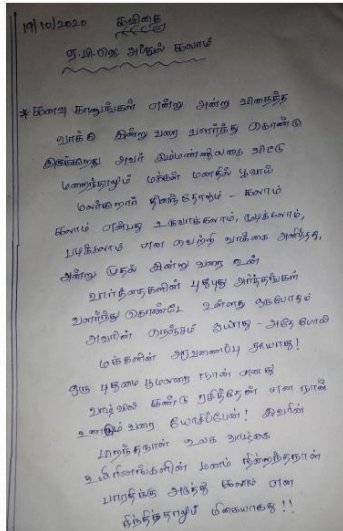 19/10/2020 கவிதை
ஏ.பி.ஜெ. அப்துல் கலாம்
* கனவு காணுங்கள் என்று அன்று விதைத்த
வாக்கு இன்று வரை வளர்ந்து கொண்டு
இருக்கிறது அவர் இம்மண்ணுலகை விட்டு
மறைந்தாலும் மக்கள் மனதில் பூவாய்
மலர்கிறார் தினந்தோறும் - கலாம்
கலாம் என்பது உருவாக்கலாம்,
படிக்கலாம் என வெற்றி வாகை அளித்த,
அன்று முதல் இன்று வரை உன்
வார்த்தைகளின் புதுபுது அர்த்தங்கள்
வளர்ந்து கொண்டே உள்ளது ஒருபோதும்
அவரின் நெஞ்சம் - அதே போல்
மக்களின் அரவணைப்பு
ஒரு புதுமை நான் எனது
வாழ்வில் கண்டு ரசித்தேன் என நான்
வரை யோசிப்பேன்! இவரின்
பிறந்தநாள் உலக வாழ்கை
உயிரினங்களின் மனம்
பாரதிக்கு அடுத்து கலாம் என
சிந்தித்தாலும் மிகையாகாது!!